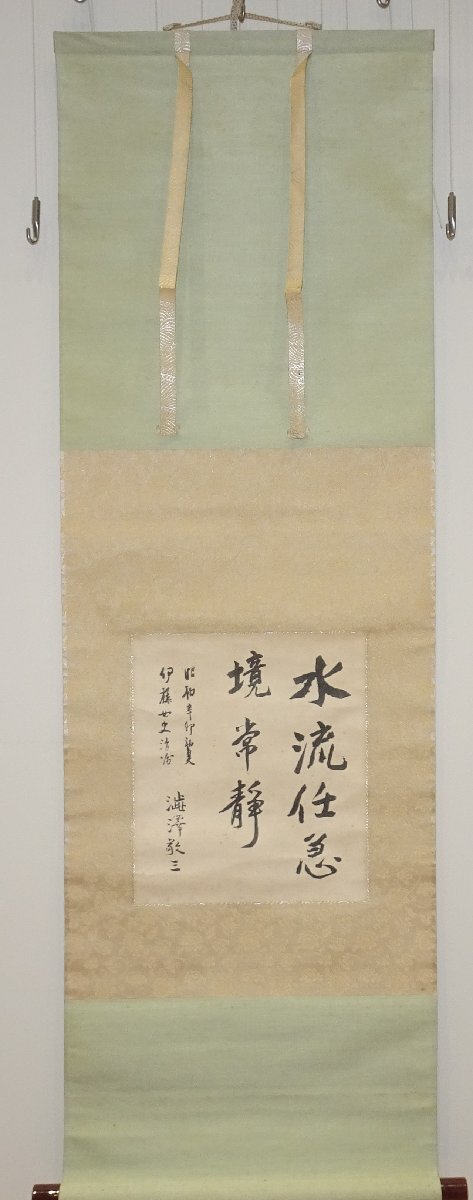 水流任急
境常靜
昭和辛卯初夏
伊藤女史清鑒
澁澤敬三